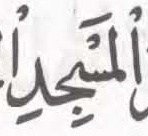 الْمَسْجِدِ